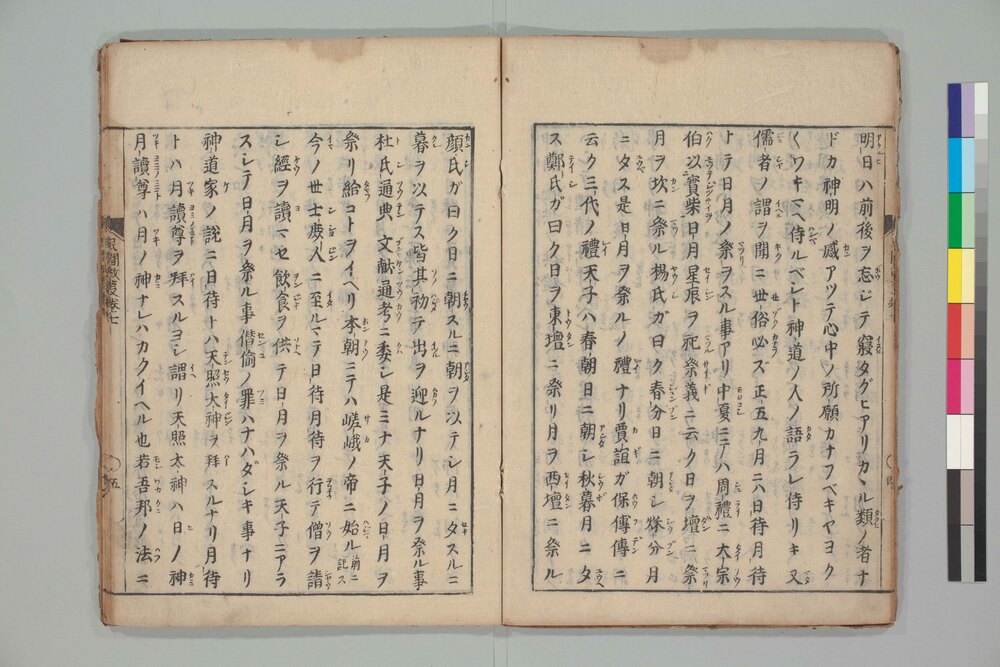 明日ハ前後ヲ忘シテ寝タグヒアリカヽル類ノ者ナ
ドカ神明ノ感アツテ心中ノ所願カナフベキヤヨク
〱ワキマヘ侍ルベシト神道ノ人ノ語ラレ侍リキ又
儒者ノ謂ヲ聞ニ世俗必ズ正五九月ニハ日待月待
トテ日月ノ祭ヲスル事アリ中夏ニテハ周禮ニ大宗
伯以實柴日月星辰ヲ祀祭義ニ云ク日ヲ壇ニ祭
月ヲ坎ニ祭ル楊氏ガ曰ク春分日ニ朝シ秌分月
ニタス是日月ヲ祭ルノ禮ナリ賈誼ガ保傅傳ニ
云ク三代ノ禮天子ハ春朝日ニ朝シ秋暮月ニタ
ス鄭氏ガ曰ク日ヲ東壇ニ祭リ月ヲ西壇ニ祭ル
顔氏ガ曰ク日ニ朝スルニ朝ヲ以テシ月ニタスルニ
暮ヲ以テス皆其初テ出ヲ迎ルナリ日月ヲ祭ル事
杜氏通典文献通考ニ委シ是ミナ天子ノ日月ヲ
祭リ給コトヲイヘリ本朝ニテハ嵯峨ノ帝ニ始ル前ニ記ス
今ノ世士庻人ニ至ルマテ日待月待ヲ行テ僧ヲ請
シ經ヲ讀マセ飲食ヲ供テ日月ヲ祭ル天子ニアラ
スシテ日月ヲ祭ル事僣偷ノ罪ハナハダシキ事ナリ
神道家ノ説ニ日待ト八天照大神ヲ拜スルナリ月待
トハ月讀尊ヲ拜スルヨシ謂リ天照太神ハ日ノ神
月讀尊ハ月ノ神ナレハカクイヘル也若吾邦ノ法ニ